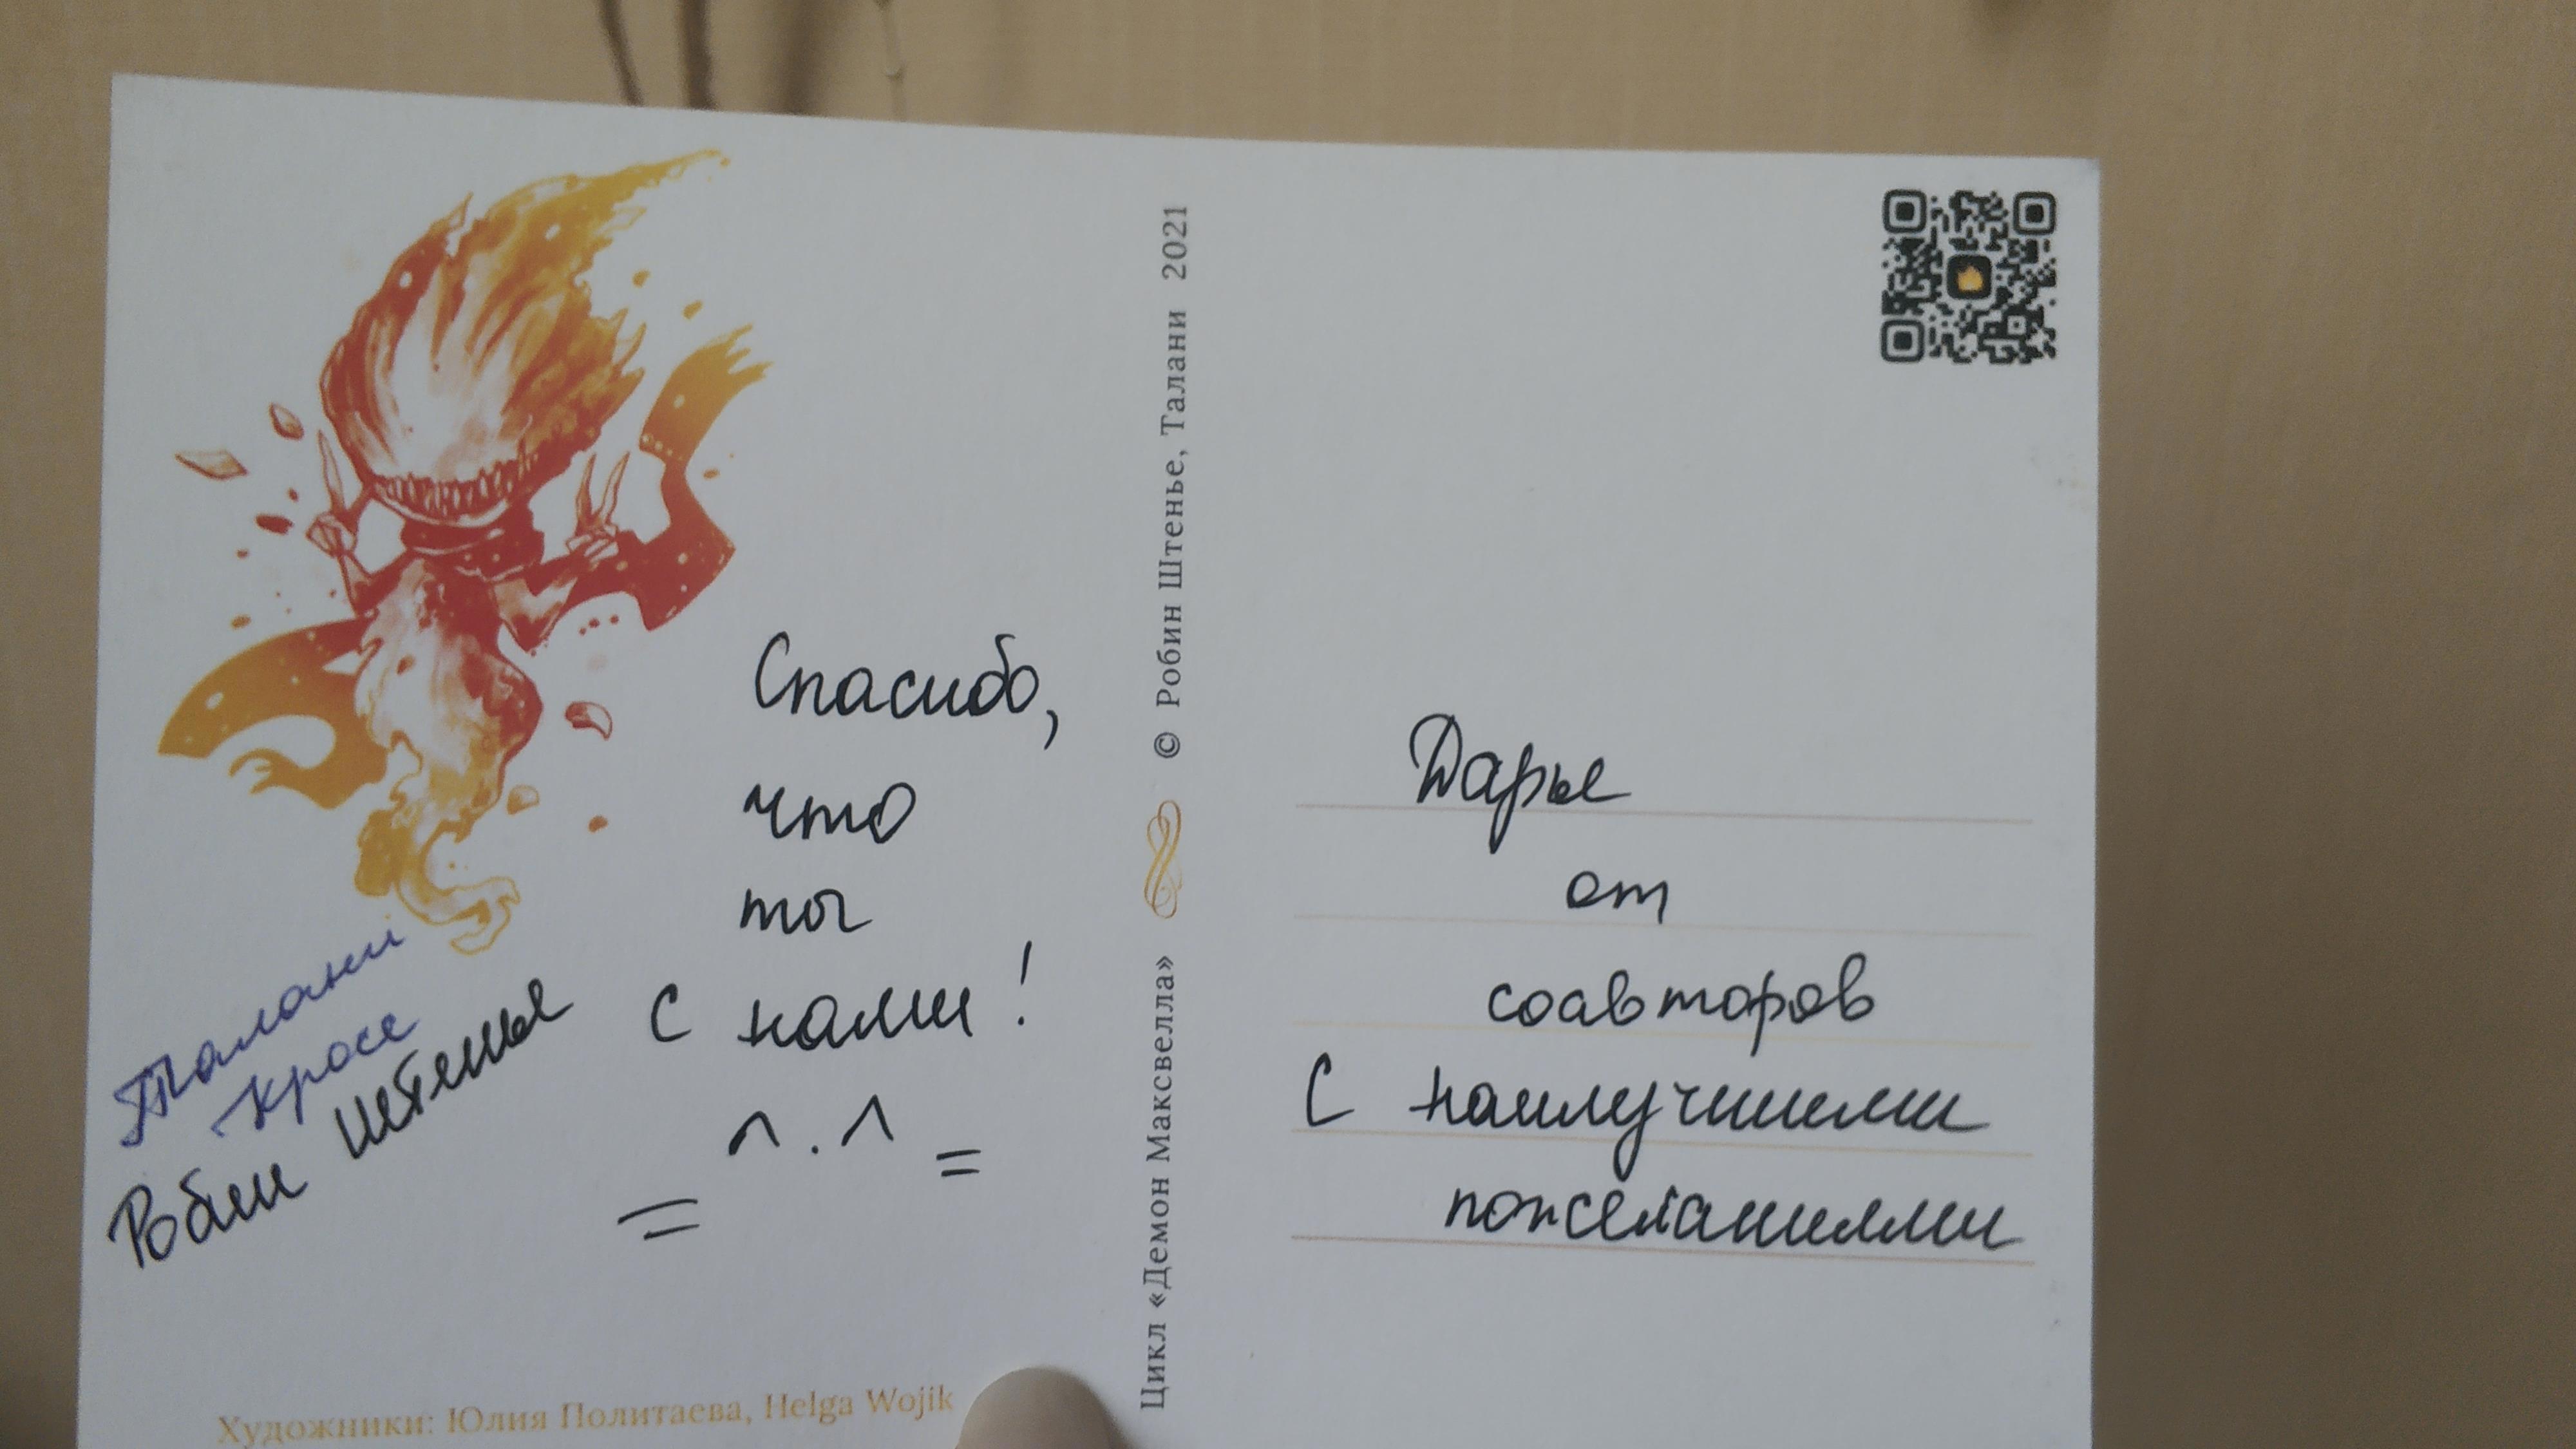 Спасибо,
что
ты
с нами!
= ^.^ =
Талани
Кросс
Робин Штенье
Художники: Юлия Политаева, Helga Wojik
Цикл «Демон Максвелла» © Робин Штенье, Талани 2021
Дарье
от
соавторов
С наилучшими
пожеланиями